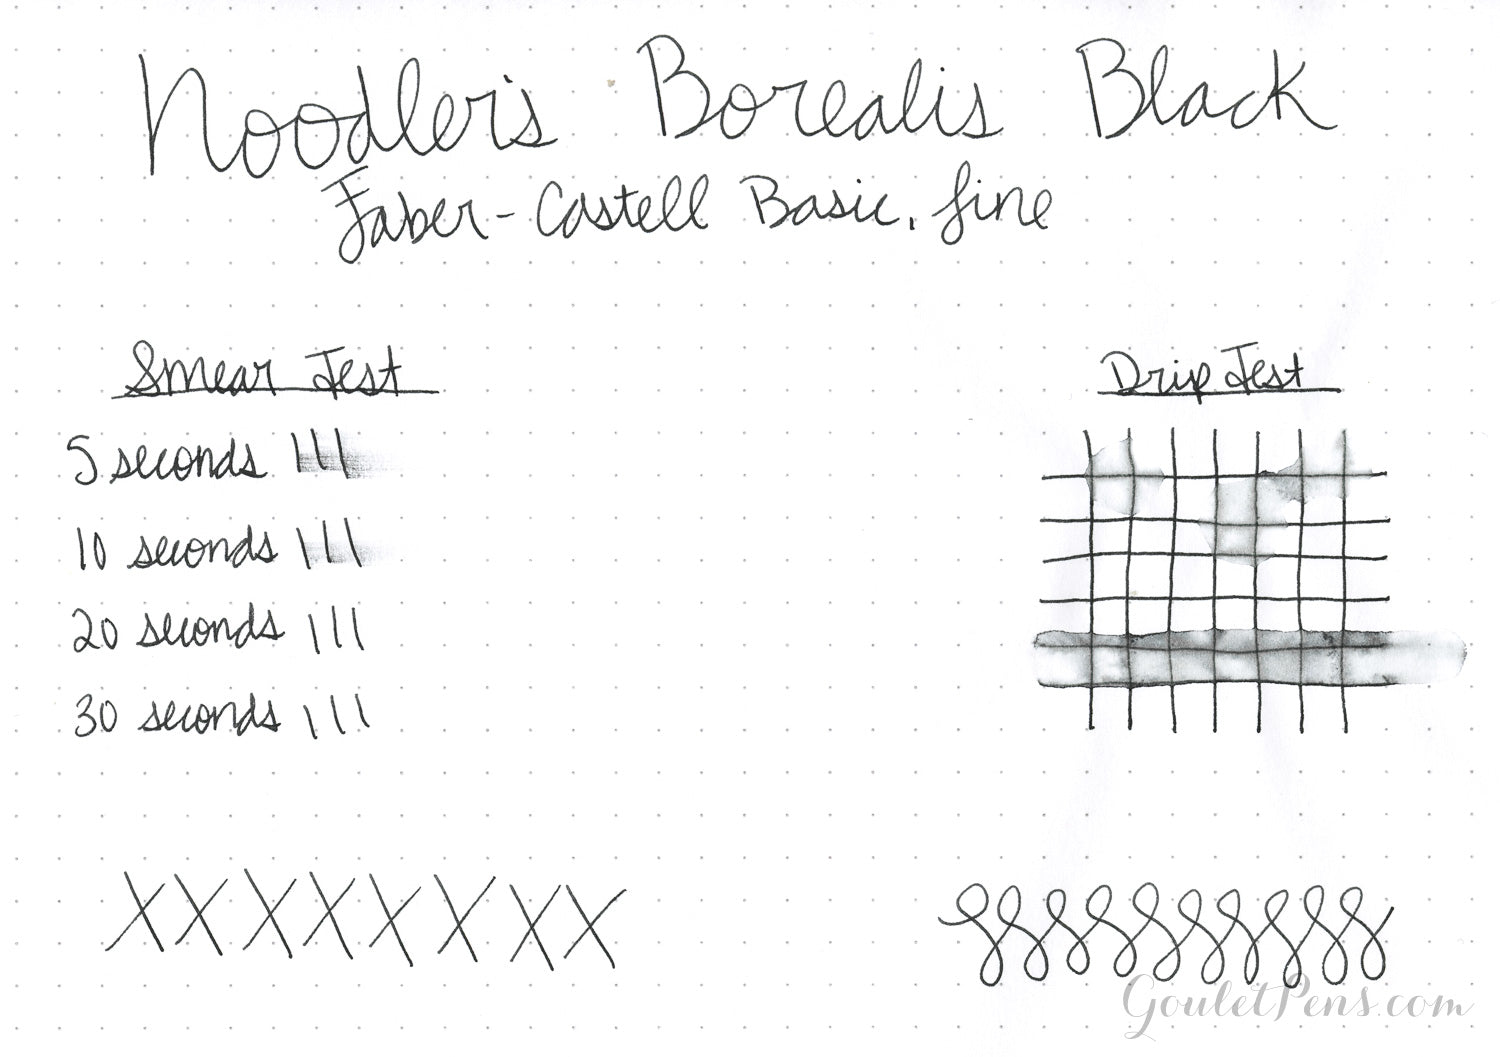 Noodler's Borealis Black
Faber-Castell Basic, fine
Smear Test
5 seconds
10 seconds
20 seconds
30 seconds
Drip Test
XXXXXXXX
GouletPens.com